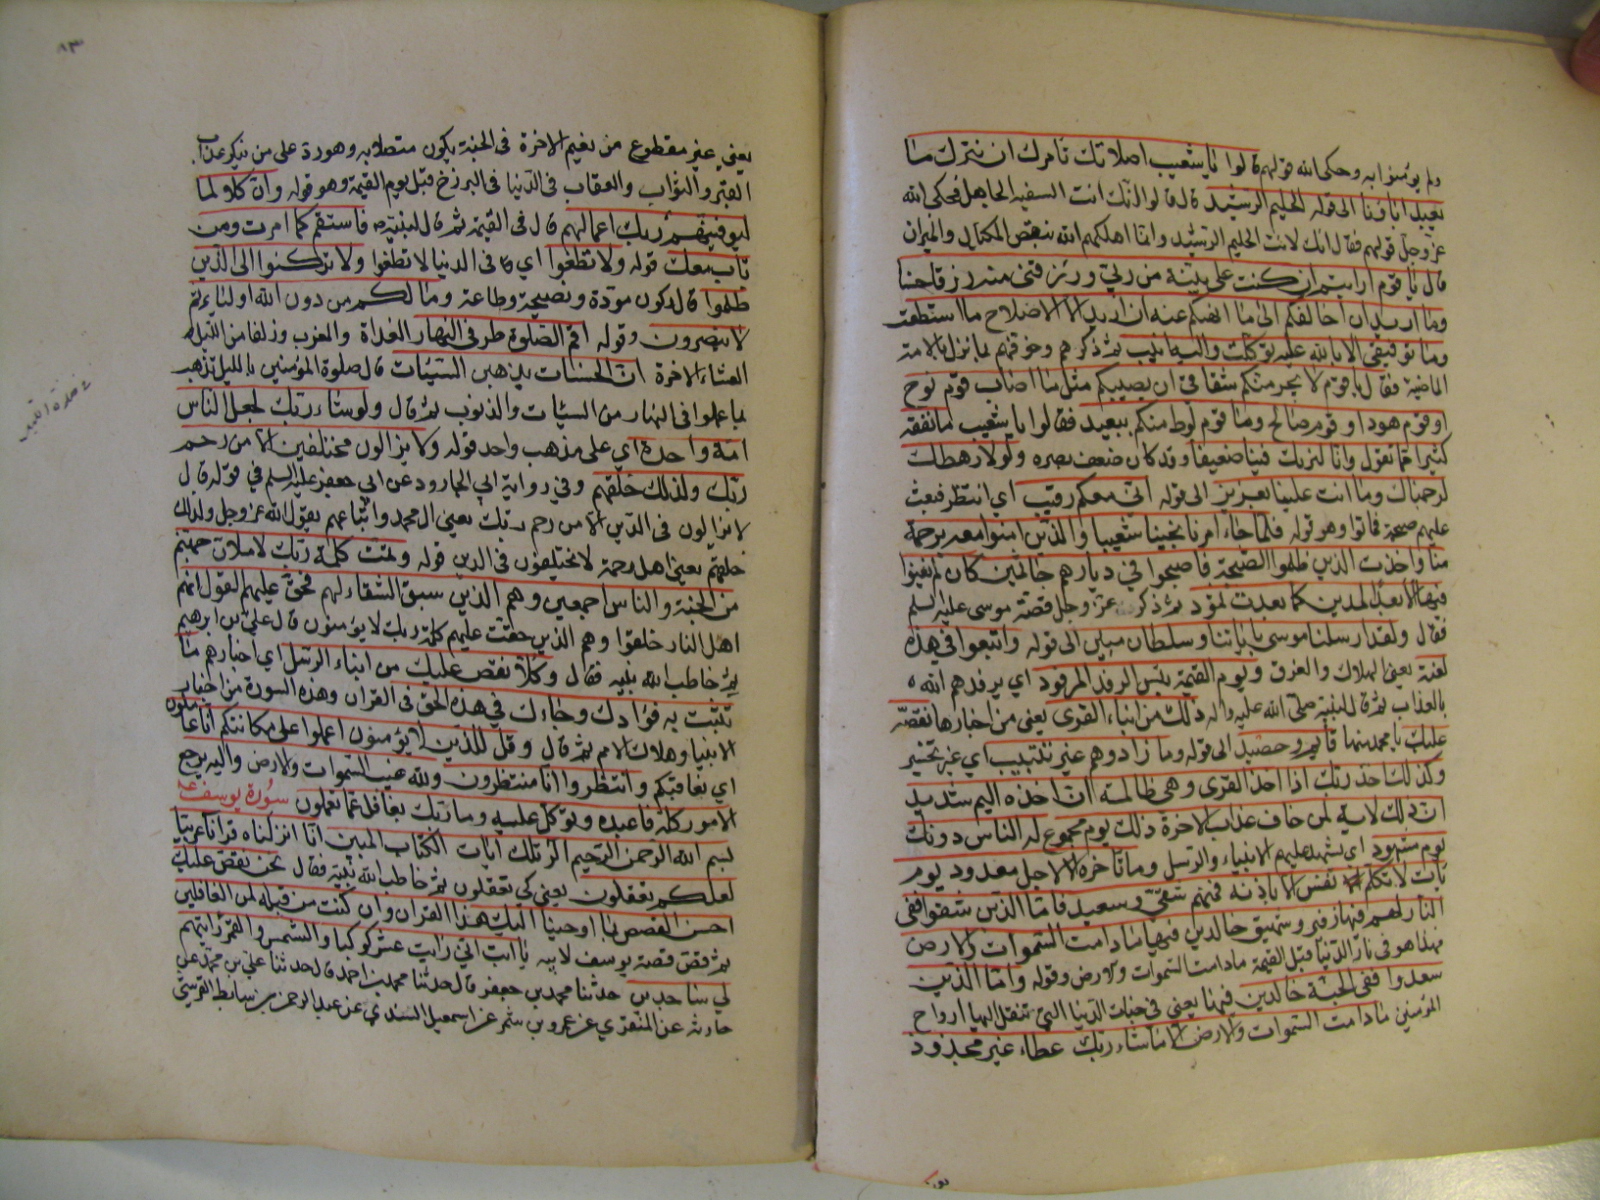 ولم يؤمنوا به وحكى الله قولهم قالوا يا شعيب اصلاتك تامرك ان نترك ما
يعبد اباؤنا الى قوله الحليم الرشيد قال قالوا انك انت السفيه الجاهل فحكى الله
عز وجل قولهم فقال انك لانت الحليم الرشيد وانما اهلكهم الله بنقص المكيال والميزان
قال يا قوم ارايتم ان كنت على بينة من ربي ورزقني منه رزقا حسنا
وما اريد ان اخالفكم الى ما انهيكم عنه ان اريد الا الاصلاح ما استطعت
وما توفيقي الا بالله عليه توكلت واليه انيب ثم ذكرهم وخوفهم بما نزل بالامم
الماضية فقال يا قوم لا يجرمنكم شقاقي ان يصيبكم مثل ما اصاب قوم نوح
او قوم هود او قوم صالح وما قوم لوط منكم ببعيد فقالوا يا شعيب ما نفقه
كثيرا مما تقول وانا لنريك فينا ضعيفا وقد كان ضعف بصره ولولا رهطك
لرجمناك وما انت علينا بعزيز الى قوله اني معكم رقيب اي انتظر فبعث
عليهم صيحة فماتوا وهو قوله فلما جاء امرنا نجينا شعيبا والذين امنوا معه برحمة
منا واخذت الذين ظلموا الصيحة فاصبحوا في ديارهم جاثمين كان لم يغنوا
فيها الا بعدا لمدين كما بعدت ثمود ثم ذكر عز وجل قصة موسى عليه السلم
فقال ولقد ارسلنا موسى باياتنا وسلطان مبين الى قوله واتبعوا في هذه
لعنة يعني الهلاك والغرق ويوم القيمة بئس الرفد المرفود اي يرفدهم الله
بالعذاب ثم قال لنبيه صلى الله عليه واله ذلك من انباء القرى يعني من اخبارها نقصه
عليك يا محمد منها قائم وحصيد الى قوله وما زادوهم غير تتبيب اي غير تخسير
وكذلك اخذ ربك اذا اخذ القرى وهي ظالمة ان اخذه اليم شديد
ان في ذلك لاية لمن خاف عذاب الاخرة ذلك يوم مجموع له الناس وذلك
يوم مشهود اي يشهد عليهم الانبياء والرسل وما نؤخره الا لاجل معدود يوم
يات لا تكلم نفس الا باذنه فمنهم شقي وسعيد فاما الذين شقوا ففي
النار لهم فيها زفير وشهيق خالدين فيها ما دامت السموات والارض
فهذا هو في نار الدنيا قبل القيمة ما دامت السموات والارض وقوله واما الذين
سعدوا ففي الجنة خالدين فيها يعني في جنات الدنيا التي تنقل اليها ارواح
المؤمنين ما دامت السموات والارض الا ما شاء ربك عطاء غير مجذوذ
٨٣
يعني غير مقطوع من نعيم الاخرة في الجنة يكون متصلا به وهو رد على من ينكر عذاب
القبر والثواب والعقاب في الدنيا في البرزخ قبل يوم القيمة وهو قوله وان كلا لما
ليوفينهم ربك اعمالهم قال في القيمة ثم قال لنبيه ص فاستقم كما امرت ومن
تاب معك قوله ولا تطغوا اي في الدنيا لا تطغوا ولا تركنوا الى الذين
ظلموا قال ركون مودة ونصيحة وطاعة وما لكم من دون الله اولياء ثم
لا تنصرون وقوله اقم الصلوة طرفي النهار الغداة والمغرب وزلفا من الليل
العشاء الاخرة ان الحسنات يذهبن السيئات قال صلوة المؤمنين بالليل تذهب
بما عملوا في النهار من السيئات والذنوب ثم قال ولو شاء ربك لجعل الناس
امة واحدة اي على مذهب واحد قوله ولا يزالون مختلفين الا من رحم
ربك ولذلك خلقهم وفي رواية ابي الجارود عن ابي جعفر عليه السلم في قوله قال
لا يزالون في الدين الا من رحم ربك يعني ال محمد واتباعهم يقول الله عز وجل ولذلك
خلقهم يعني اهل رحمة لا يختلفون في الدين قوله وتمت كلمة ربك لاملان جهنم
من الجنة والناس اجمعين وهم الذين سبق الشقاء لهم فحق عليهم القول انهم
اهل النار خلقوا وهم الذين حقت عليهم كلمة ربك لا يؤمنون قال علي بن ابرهيم
ثم خاطب الله نبيه فقال وكلا نقص عليك من انباء الرسل اي اخبارهم ما
نثبت به فؤادك وجاءك في هذه الحق في القران وهذه السورة من اخبار
الانبيا وهلاك الامم ثم قال وقل للذين لا يؤمنون اعملوا على مكانتكم انا عاملون
اي نعاقبكم وانتظروا انا منتظرون ولله غيب السموات والارض واليه يرجع
الامور كله فاعبده وتوكل عليه وما ربك بغافل عما تعملون سورة يوسف
بسم الله الرحمن الرحيم الر تلك ايات الكتاب المبين انا انزلناه قرانا عربيا
لعلكم تعقلون يعني كي تعقلون ثم خاطب الله نبيه فقال نحن نقص عليك
احسن القصص بما اوحينا اليك هذا القران وان كنت من قبله لمن الغافلين
ثم قص قصة يوسف لابيه يا ابت اني رايت عشر كوكبا والشمس والقمر رايتهم
لي ساجدين حدثنا محمد بن جعفر قال حدثنا محمد بن احمد قال حدثنا علي بن محمد عن
حدثه عن المنقري عن عمرو بن شمر عن اسمعيل السندي عن عبد الرحمن بن سابط القرشي